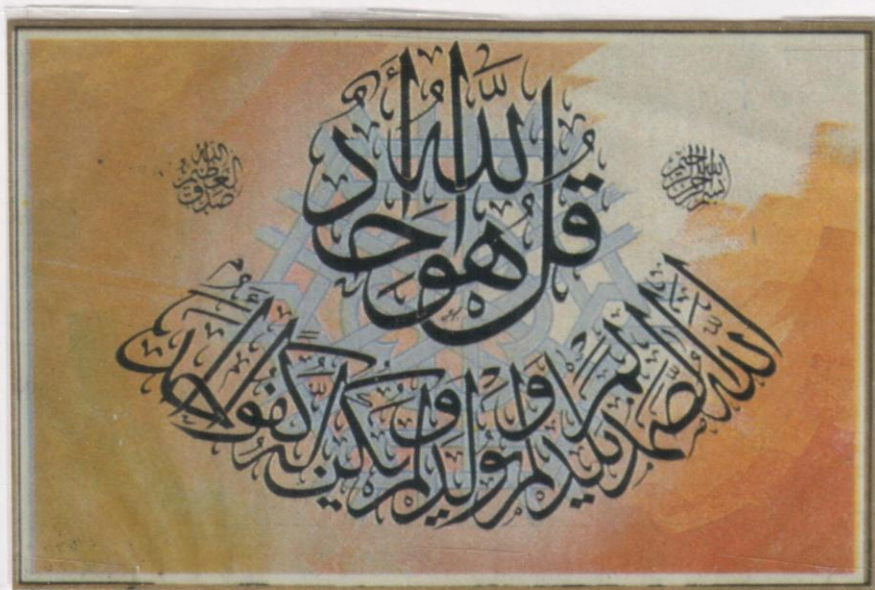 بسم الله الرحمن الرحيم
قل هو الله أحد
الله الصمد لم يلد ولم يولد ولم يكن له كفوا أحد
صدق الله العظيم